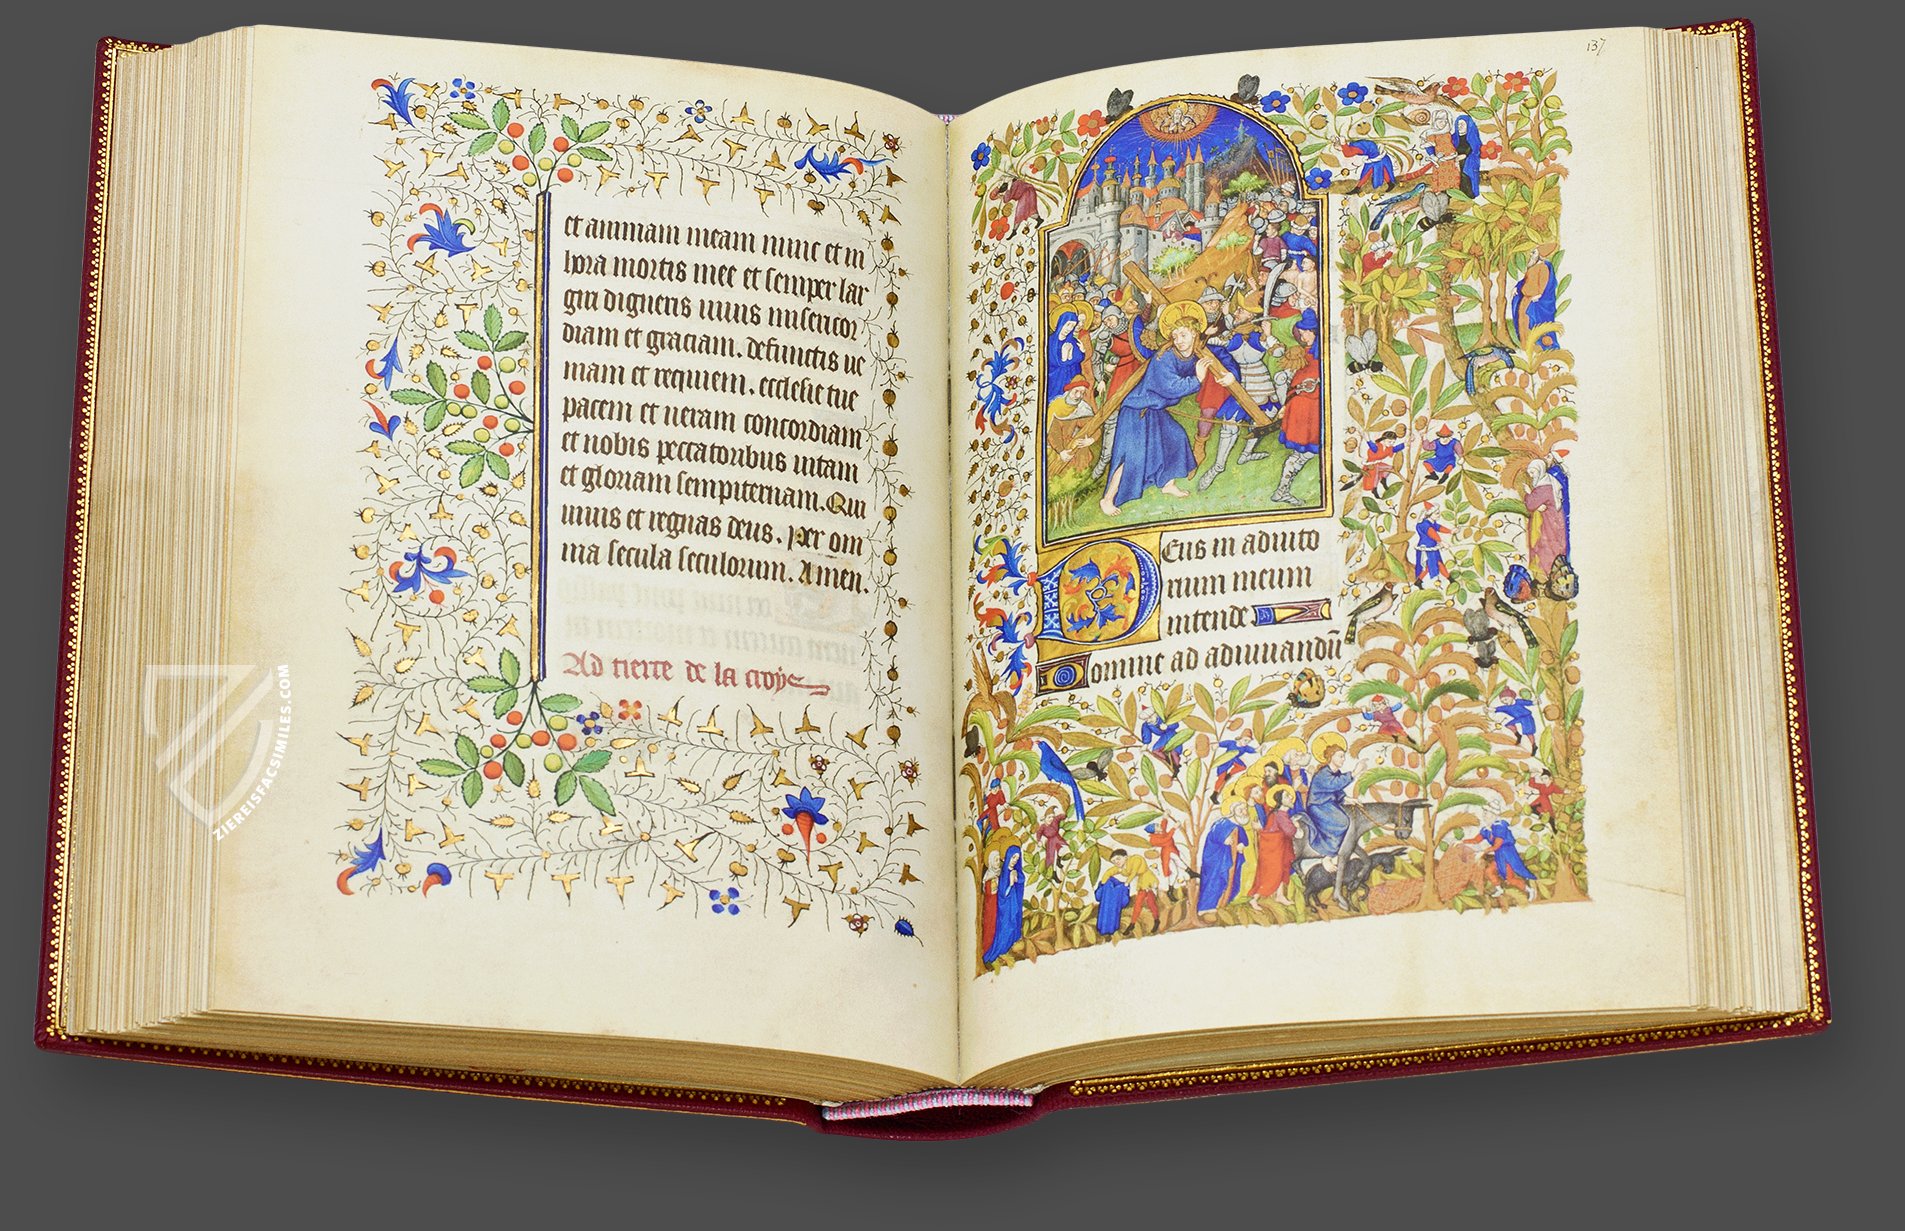 et animam meam nunc et in
hora mortis mee et semper lar
giri digneris viuis misericor
diam et graciam. defunctis ve
niam et requiem. ecclesie tue
pacem et veram concordiam
et nobis peccatoribus vitam
et gloriam sempiternam. Qui
viuis et regnas deus. Per om
nia secula seculorum. Amen.
Ad tierce de la croys
137
Deus in adiuto
rium meum
intende
Domine ad adiuuandū
ZIEREISFACSIMILES.COM